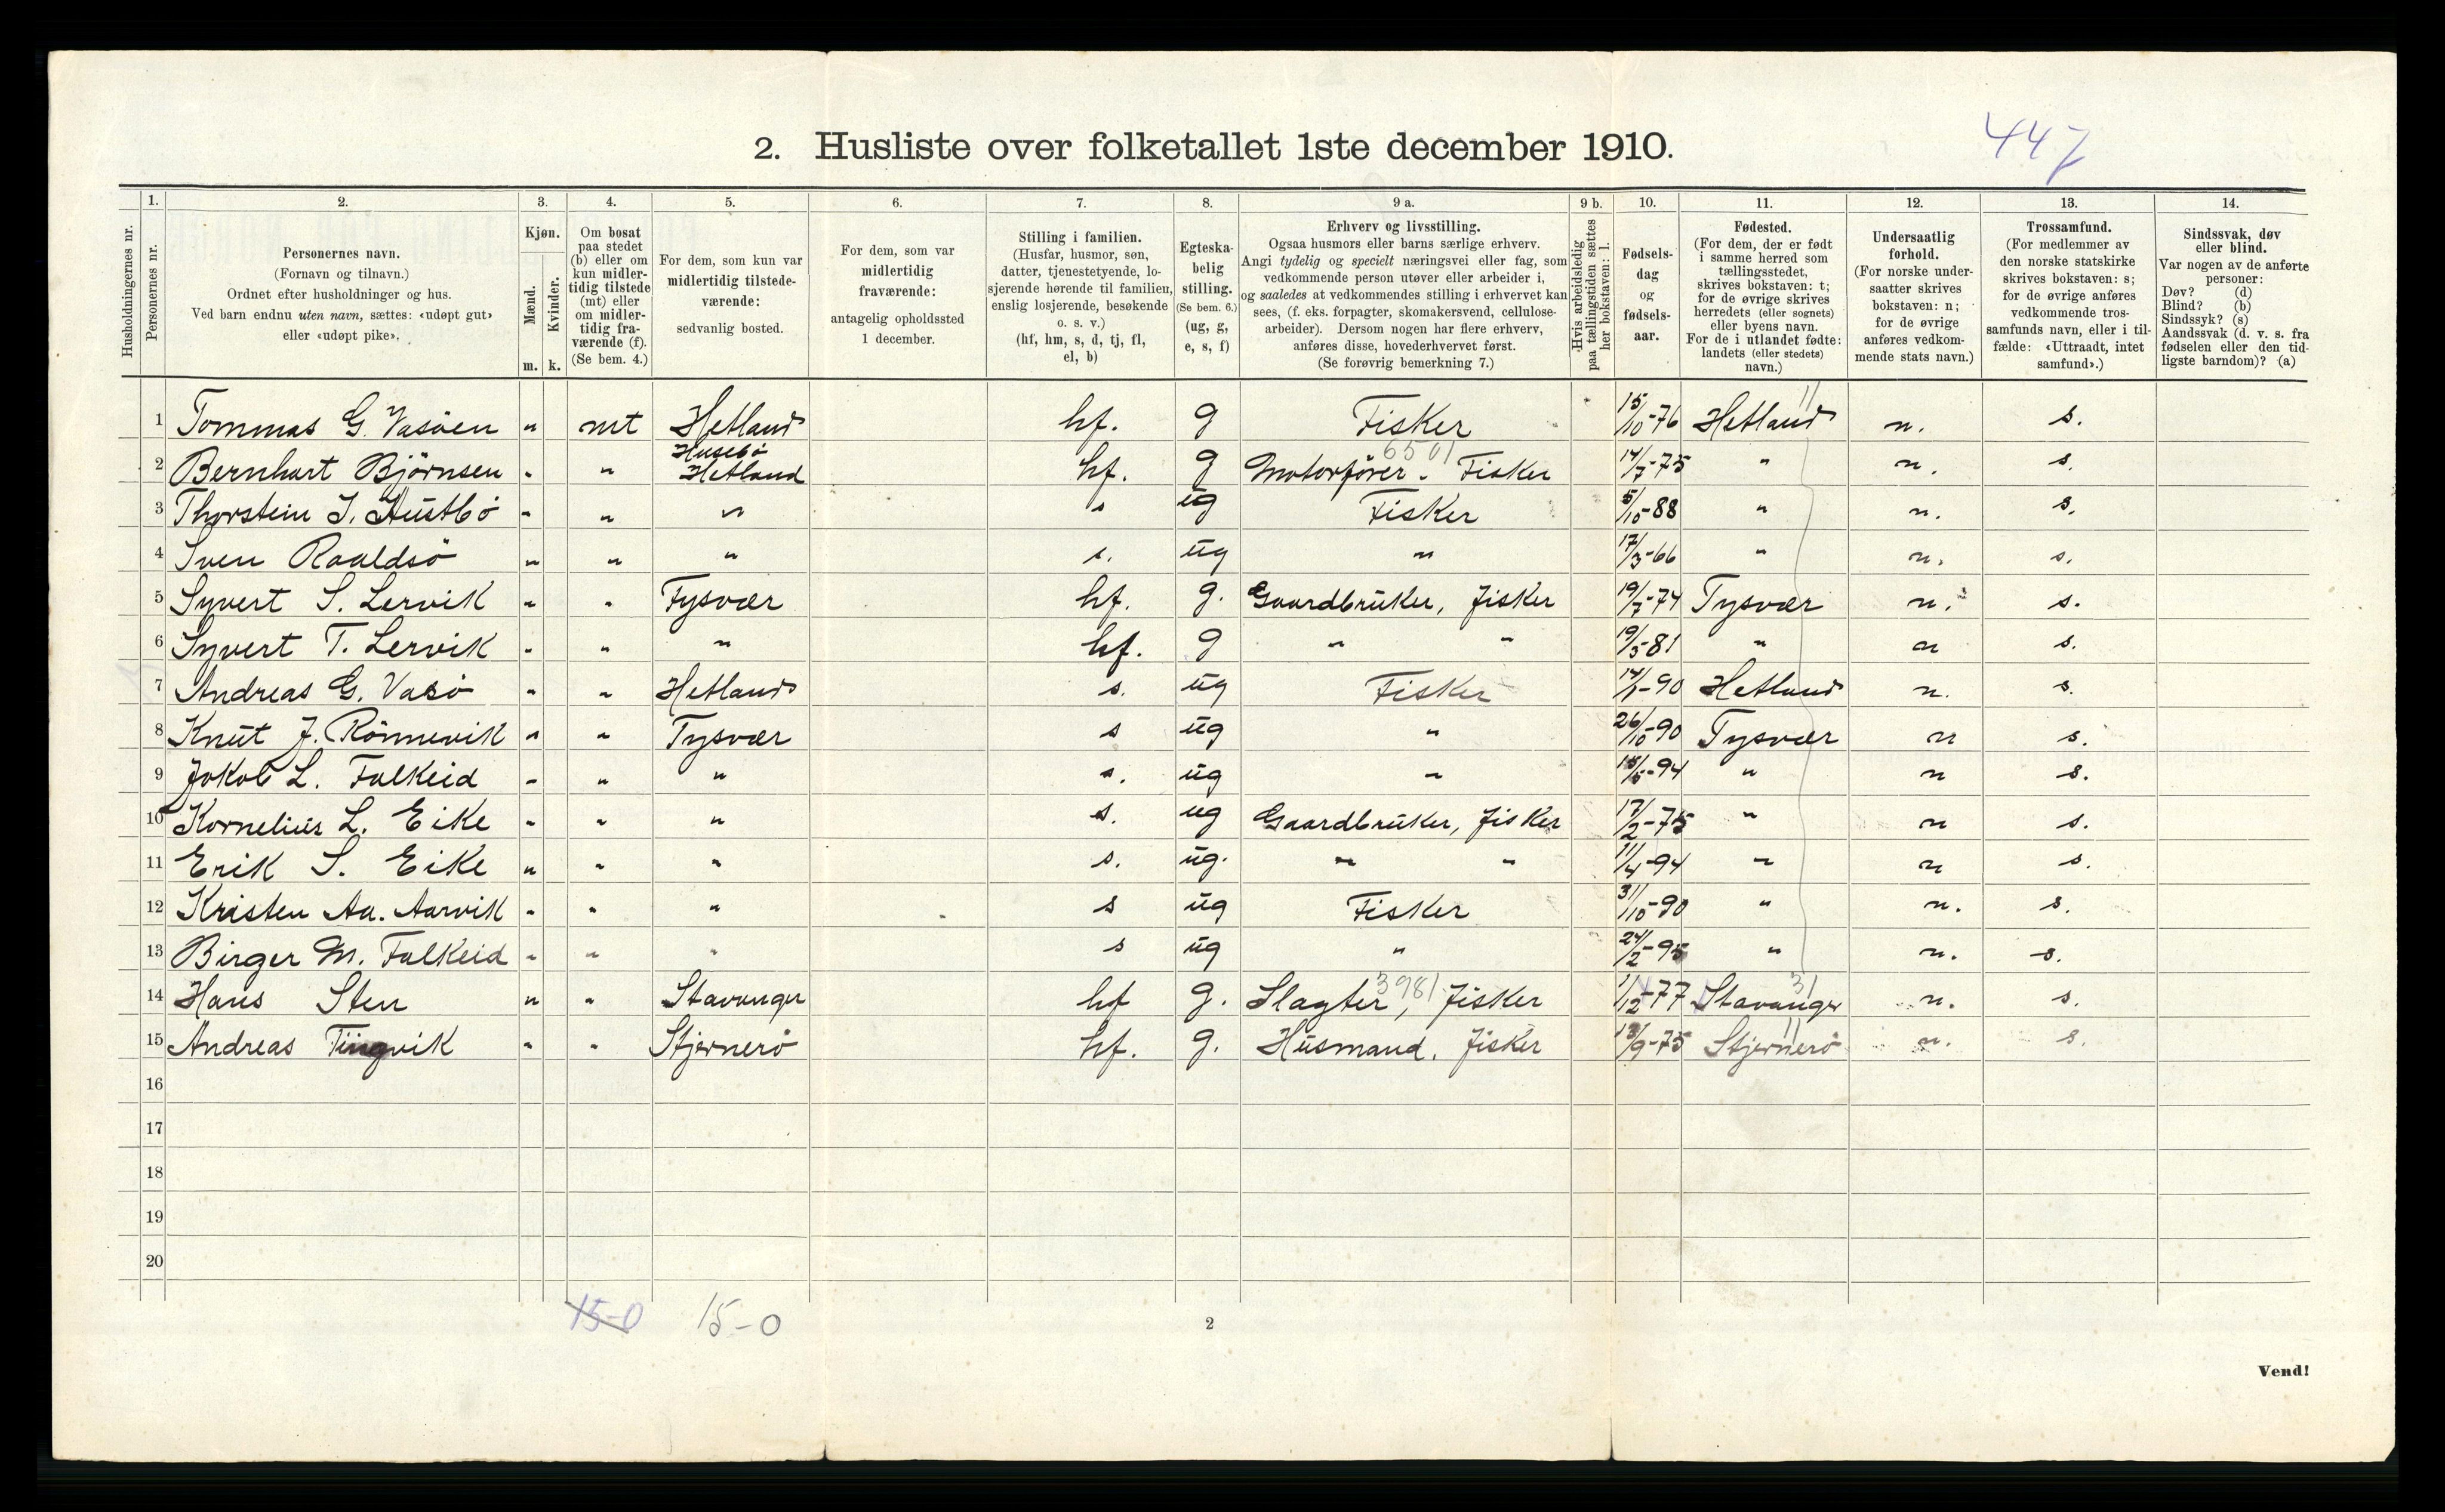 2. Husliste over folketallet 1ste december 1910.
447
1. 2. 3. 4. 5. 6. 7. 8. 9 a. 9 b. 10. 11. 12. 13. 14.
Husholdningernes nr.
Personernes nr.
Personernes navn.
(Fornavn og tilnavn.)
Ordnet efter husholdninger og hus.
Ved barn endnu uten navn, sættes: «udøpt gut»
eller «udøpt pike».
Kjøn.
Mænd.
Kvinder.
m. k.
Om bosat
paa stedet
(b) eller om
kun midler-
tidig tilstede
(mt) eller
om midler-
tidig fra-
værende (f).
(Se bem. 4.)
For dem, som kun var
midlertidig tilstede-
værende:
sedvanlig bosted.
For dem, som var
midlertidig
fraværende:
antagelig opholdssted
1 december.
Stilling i familien.
(Husfar, husmor, søn,
datter, tjenestetyende, lo-
sjerende hørende til familien,
enslig losjerende, besøkende
o. s. v.)
(hf, hm, s, d, tj, fl,
el, b)
Egteska-
belig
stilling.
(Se bem. 6.)
(ug, g,
e, s, f)
Erhverv og livsstilling.
Ogsaa husmors eller barns særlige erhverv.
Angi tydelig og specielt næringsvei eller fag, som
vedkommende person utøver eller arbeider i,
og saaledes at vedkommendes stilling i erhvervet kan
sees, (f. eks. forpagter, skomakersvend, cellulose-
arbeider). Dersom nogen har flere erhverv,
anføres disse, hovederhvervet først.
(Se forøvrig bemerkning 7.)
Hvis arbeidsledig
paa tællingstiden sættes
her bokstaven: l.
Fødsels-
dag
og
fødsels-
aar.
Fødested.
(For dem, der er født
i samme herred som
tællingsstedet,
skrives bokstaven: t;
for de øvrige skrives
herredets (eller sognets)
eller byens navn.
For de i utlandet fødte:
landets (eller stedets)
navn.)
Undersaatlig
forhold.
(For norske under-
saatter skrives
bokstaven: n;
for de øvrige
anføres vedkom-
mende stats navn.)
Trossamfund.
(For medlemmer av
den norske statskirke
skrives bokstaven: s;
for de øvrige anføres
vedkommende tros-
samfunds navn, eller i til-
fælde: «Uttraadt, intet
samfund».)
Sindssvak, døv
eller blind.
Var nogen av de anførte
personer:
Døv? (d)
Blind? (b)
Sindssyk? (s)
Aandssvak (d. v. s. fra
fødselen eller den tid-
ligste barndom)? (a)
11
1 Tommas G. Vasöen " mt Hetland hf. g Fisker 15/10-76 Hetland n. s.
6501
2 Bernhart Björnsen " " Husebö Hetland hf. g Motorförer. Fisker 14/7-75 " n. s.
3 Thorstein J. Austbö " " " s ug Fisker 5/10-88 " n. s.
4 Sven Roaldsö " " " s. ug " 17/3-66 " n. s.
5 Syvert S. Lervik " " Tysvær hf. g. Gaardbruker, fisker 19/7-74 Tysvær n. s.
6 Syvert T. Lervik " " " hf. g " " 19/5-81 " n s.
7 Andreas G. Vasö " " Hetland s. ug Fisker 14/1-90 Hetland n. s.
8 Knut J. Rönnevik " " Tysvær s ug " 26/10-90 Tysvær n s.
9 Jokob L. Falkeid " " " s. ug " -94 " n s.
10 Kornelius L. Eike " " " s. ug Gaardbruker, fisker 17/2-75 " n s.
11 Erik S. Eike " " " s. ug. " " 11/4-94 " n s.
12 Kristen Aa. Aarvik " " " s ug Fisker 31/10-90 " n. s.
13 Birger M. Falkeid " " " s ug " 24/2-95 " n. s.
3981 31
14 Hans Sten " " Stavanger hf g. Slagter, fisker 1/12-77 Stavanger n. s.
11
15 Andreas Tingvik " " Stjernerö hf. g. Husmand, fisker 13/9-75 Stjernerö n. s.
16
17
18
19
20
15-0 15-0
2
Vend!